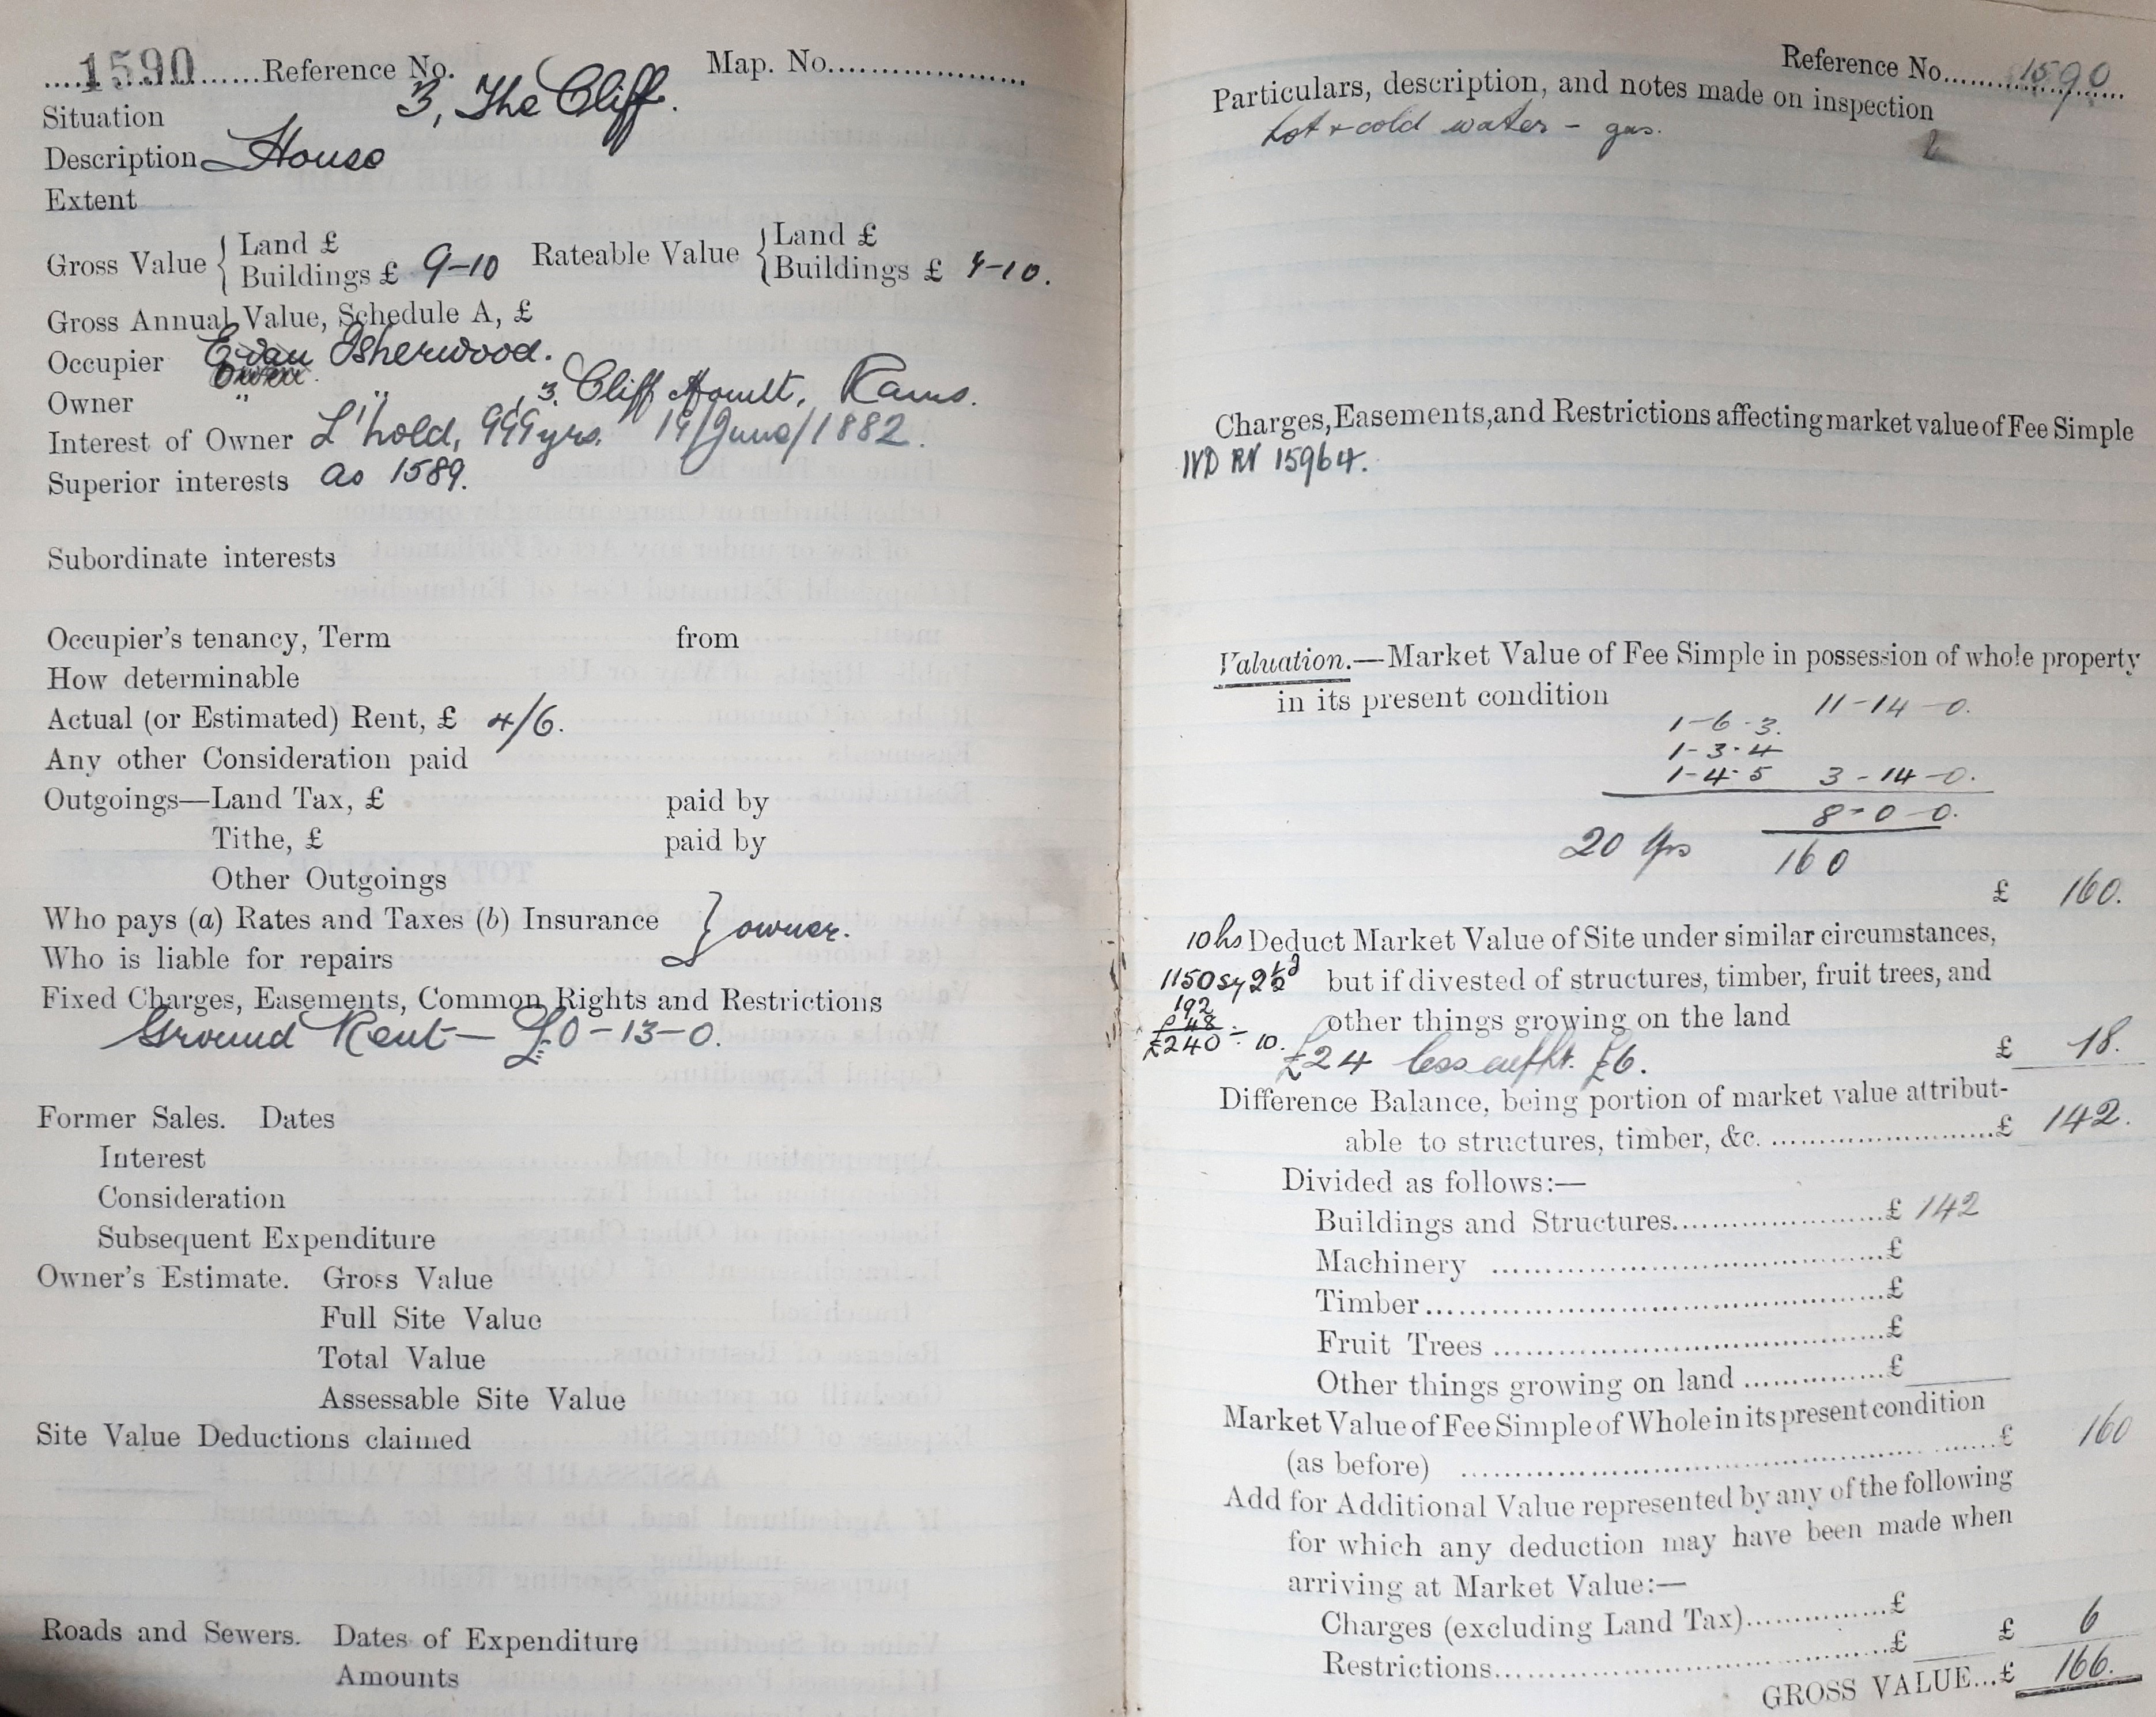 1590 Reference No. Map. No.
Situation 3, The Cliff.
Description House
Extent
Gross Value { Land £
Buildings £ 9-10 Rateable Value { Land £
Buildings £ 7-10.
Gross Annual Value, Schedule A, £
Occupier Evan Isherwood.
Owen
Owner " " , 3. Cliff Mount, Rams.
Interest of Owner L'hold, 999 yrs. 19/June/1882.
Superior interests as 1589.
Subordinate interests
Occupier's tenancy, Term from
How determinable
Actual (or Estimated) Rent, £ 4/6.
Any other Consideration paid
Outgoings—Land Tax, £ paid by
Tithe, £ paid by
Other Outgoings
Who pays (a) Rates and Taxes (b) Insurance } owner.
Who is liable for repairs
Fixed Charges, Easements, Common Rights and Restrictions
Ground Rent — £0-13-0.
Former Sales. Dates
Interest
Consideration
Subsequent Expenditure
Owner's Estimate. Gross Value
Full Site Value
Total Value
Assessable Site Value
Site Value Deductions claimed
Roads and Sewers. Dates of Expenditure
Amounts
Reference No. 1590
Particulars, description, and notes made on inspection
Hot + cold water - gas.
Charges, Easements, and Restrictions affecting market value of Fee Simple
IVD RV 15964.
Valuation.—Market Value of Fee Simple in possession of whole property
in its present condition
11-14-0.
1-6-3.
1-3-4
1-4-5 3-14-0.
8-0-0.
20 yps 160
£ 160.
10 hs Deduct Market Value of Site under similar circumstances,
1150 sy 2½d but if divested of structures, timber, fruit trees, and
192
48
other things growing on the land
£240 ÷ 10. £24 less £6. £ 18.
Difference Balance, being portion of market value attribut-
able to structures, timber, &c. £ 142.
Divided as follows:—
Buildings and Structures £ 142
Machinery £
Timber £
Fruit Trees £
Other things growing on land £
Market Value of Fee Simple of Whole in its present condition
(as before) £ 160
Add for Additional Value represented by any of the following
for which any deduction may have been made when
arriving at Market Value:—
Charges (excluding Land Tax) £
Restrictions £ £ 6
GROSS VALUE...£ 166.